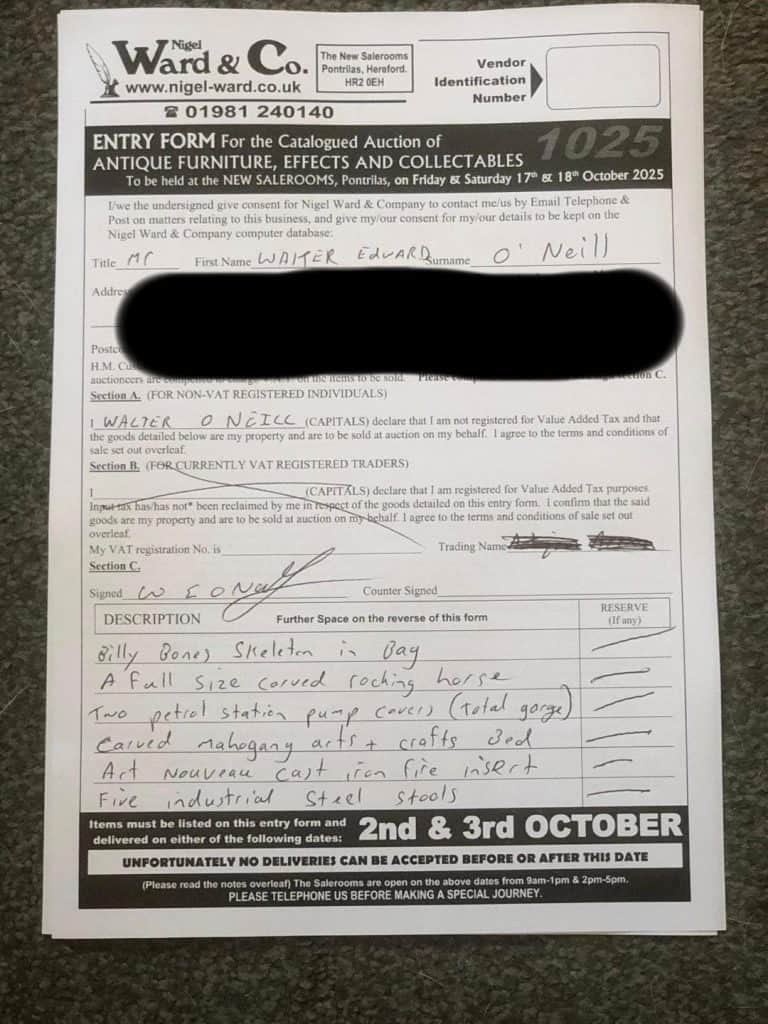 Nigel
Ward & Co.
www.nigel-ward.co.uk
☎ 01981 240140
The New Salerooms
Pontrilas, Hereford.
HR2 0EH
Vendor
Identification
Number
ENTRY FORM For the Catalogued Auction of
1025
ANTIQUE FURNITURE, EFFECTS AND COLLECTABLES
To be held at the NEW SALEROOMS, Pontrilas, on Friday & Saturday 17th & 18th October 2025
I/we the undersigned give consent for Nigel Ward & Company to contact me/us by Email Telephone &
Post on matters relating to this business, and give my/our consent for my/our details to be kept on the
Nigel Ward & Company computer database:
Title Mr First Name WALTER EDWARD Surname O' Neill
Addres
Postc
H.M. Cus
auctioneers are on the items to be sold. Please on C.
Section A. (FOR NON-VAT REGISTERED INDIVIDUALS)
I WALTER O NEILL (CAPITALS) declare that I am not registered for Value Added Tax and that
the goods detailed below are my property and are to be sold at auction on my behalf. I agree to the terms and conditions of
sale set out overleaf.
Section B. (FOR CURRENTLY VAT REGISTERED TRADERS)
I (CAPITALS) declare that I am registered for Value Added Tax purposes.
Input tax has/has not* been reclaimed by me in respect of the goods detailed on this entry form. I confirm that the said
goods are my property and are to be sold at auction on my behalf. I agree to the terms and conditions of sale set out
overleaf.
My VAT registration No. is Trading Name
Section C.
Signed W E O Counter Signed
DESCRIPTION Further Space on the reverse of this form RESERVE
(If any)
Billy Bones Skeleton in Bag
A full size carved rocking horse
Two petrol station pump covers (total gorge)
Carved mahogany arts + crafts Bed
Art Nouveau cast iron fire insert
Five industrial Steel stools
Items must be listed on this entry form and
delivered on either of the following dates: 2nd & 3rd OCTOBER
UNFORTUNATELY NO DELIVERIES CAN BE ACCEPTED BEFORE OR AFTER THIS DATE
(Please read the notes overleaf) The Salerooms are open on the above dates from 9am-1pm & 2pm-5pm.
PLEASE TELEPHONE US BEFORE MAKING A SPECIAL JOURNEY.